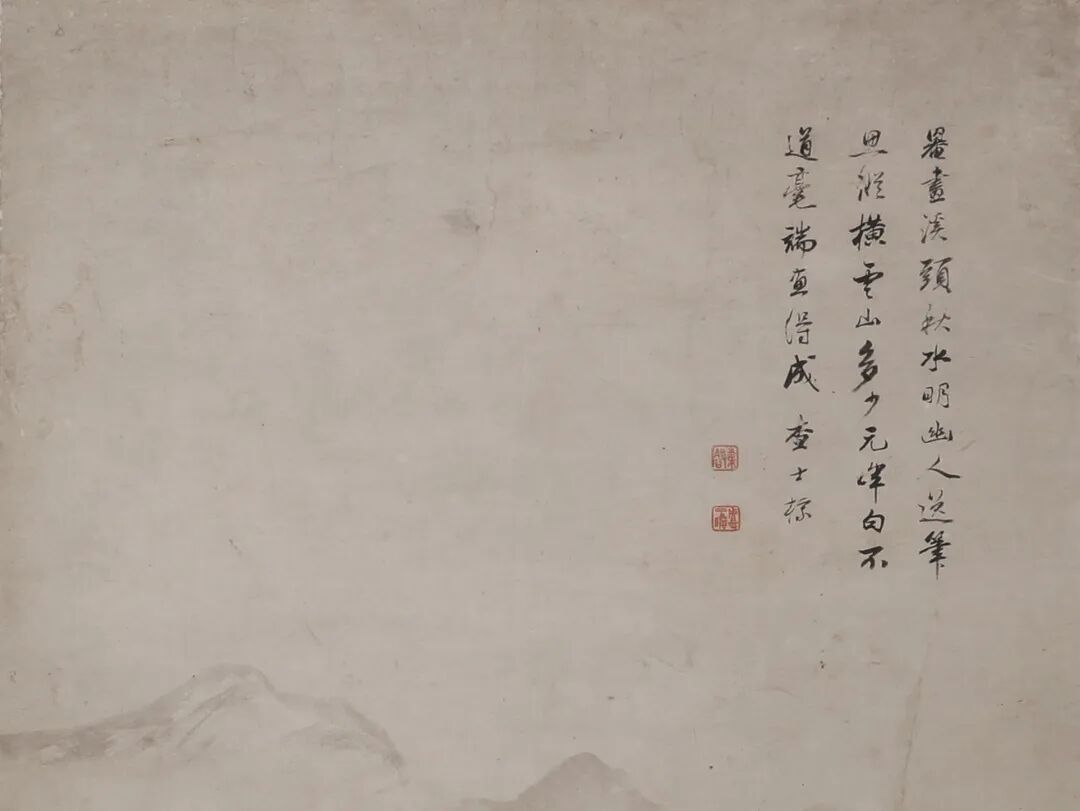 罨畫溪頭秋水明幽人逸筆
思縱橫雲山多少元暉句不
道毫端得成 查士標